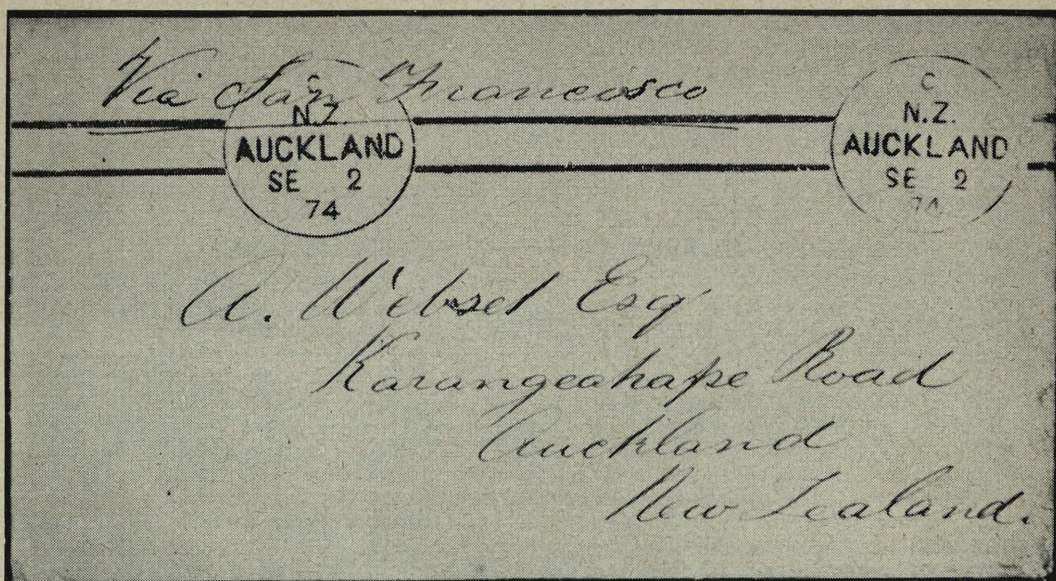 Via San Francisco
C
N.Z.
AUCKLAND
SE 2
74
C
N.Z.
AUCKLAND
SE 2
74
A. Websel Esq
Karangeahape Road
Auckland
New Zealand.